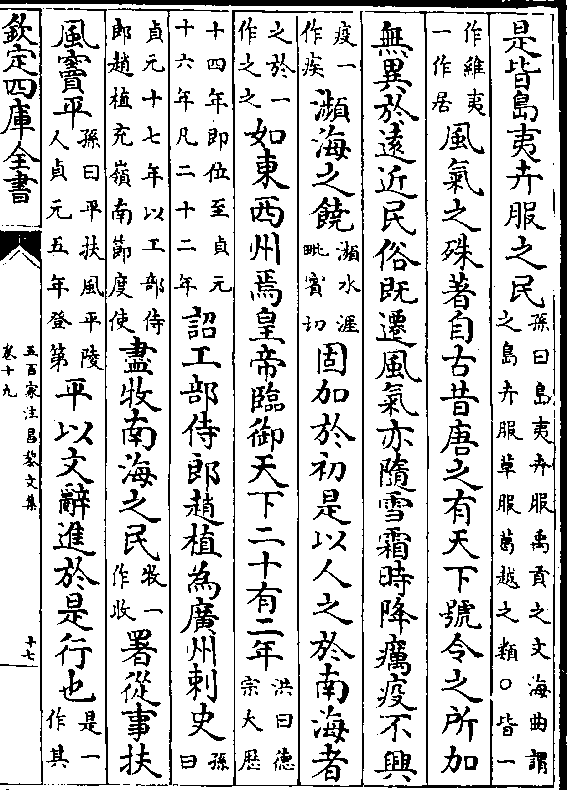 是皆島夷卉服之民孫曰島夷卉服禹貢之文海曲謂之島卉服草服葛越之類○皆一
作維夷一作居風氣之殊著自古昔唐之有天下號令之所加
無異於遠近民俗既遷風氣亦隨雪霜時降癘疫不興
疫一作疾瀕海之饒瀕水涯毗賓切固加於初是以人之於南海者
之於一作之之如東西州焉皇帝臨御天下二十有二年洪曰德宗大厯
十四年即位至貞元十六年凡二十二年詔工部侍郎趙植為廣州刺史孫曰
貞元十七年以工部侍郎趙植充嶺南節度使盡牧南海之民牧一作收署從事扶
風竇平孫曰平扶風平陵人貞元五年登第平以文辭進於是行也是一作其
欽定四庫全書
五百家注昌黎文集
卷十九
十七